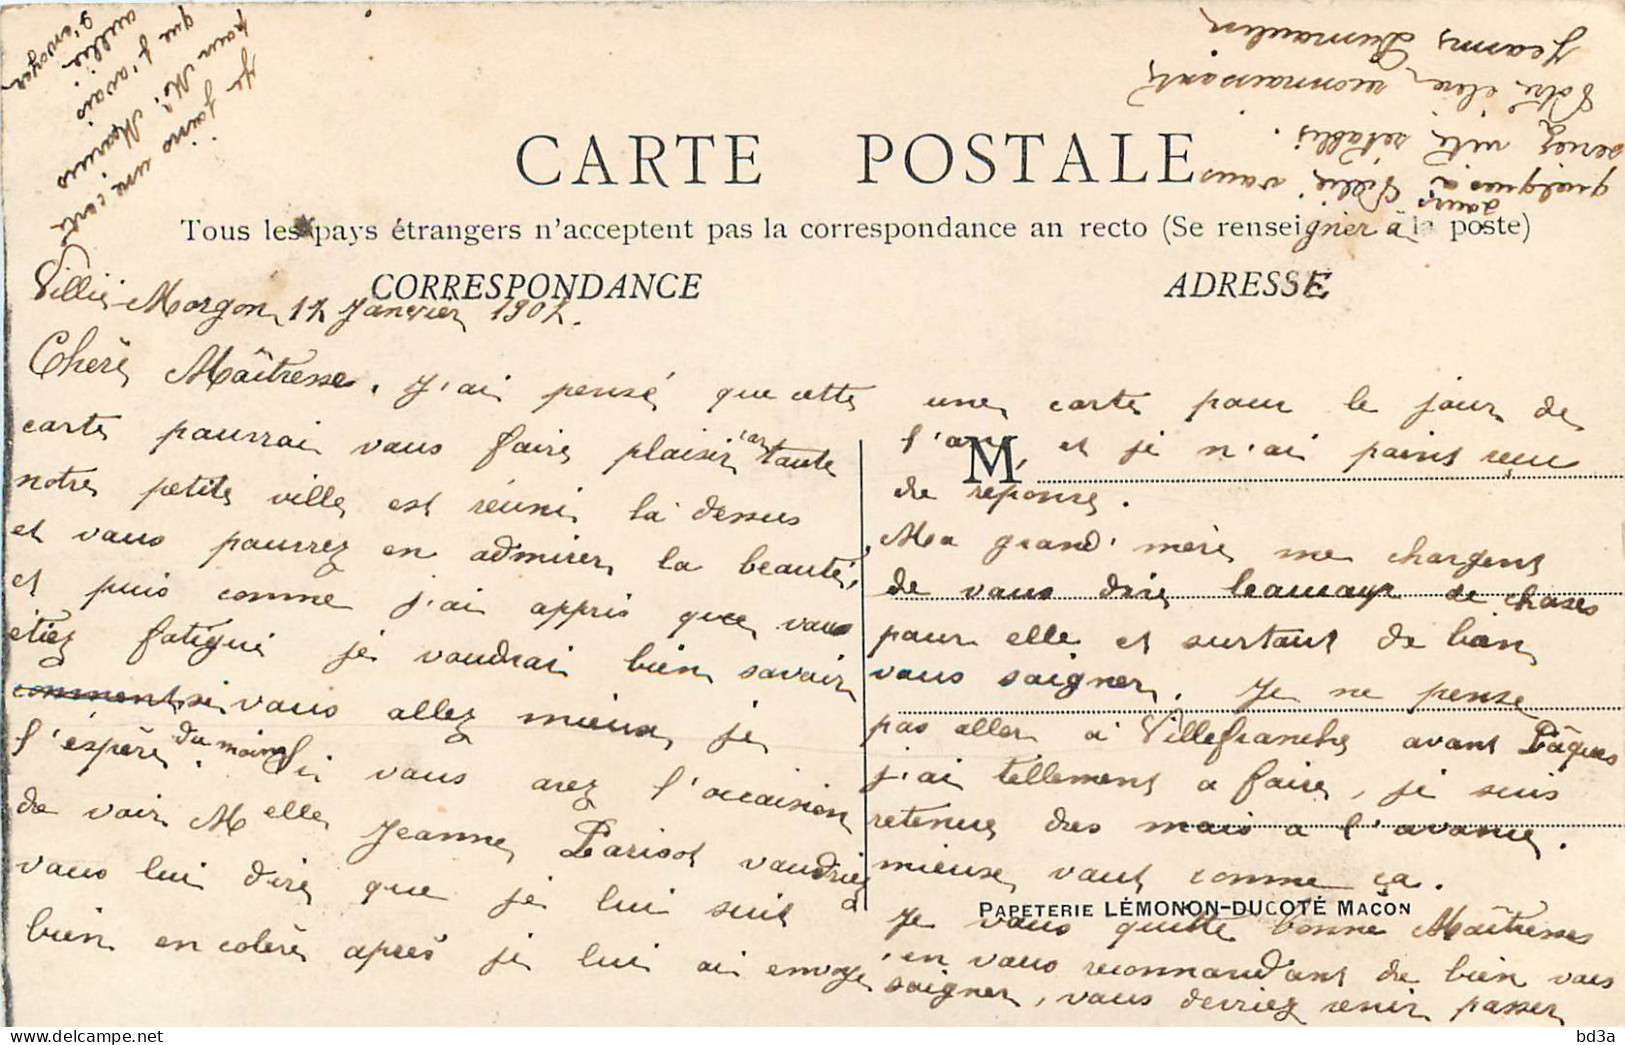 CARTE POSTALE
Tous les pays étrangers n'acceptent pas la correspondance au recto (Se renseigner à la poste)
CORRESPONDANCE
ADRESSE
Villié-Morgon, 17 Janvier 1907.
Chère Maîtresse. J'ai pensé que cette
carte pourrai vous faire plaisir car toute
notre petite ville est réuni la dessus
et vous pourrez en admirer la beauté,
et puis comme j'ai appris que vous
etiez fatigué je voudrai bien savoir
comment si vous allez mieux, je
l'éspère du moins. Si vous avez l'occaision
de voir Melle Jeanne Parisot voudriez
vous lui dire que je lui suit
bien en colère après je lui ai envoyé
une carte pour le jour de
l'an, et je n'ai point reçu
M
de reponse.
Ma grand' mère me chargent
de vous dire beaucoup de choses
pour elle et surtout de bien
vous soigner. Je ne pense
pas aller à Villefranche avant Pâques
j'ai tellement a faire, je suis
retenue des mois a l'avance.
mieux vaut comme ça.
PAPETERIE LÉMONON-DUCOTÉ MACON
Je vous quitte bonne Maîtresse
en vous recommandant de bien vous
soigner, vous devriez venir passer
quelques
jours à Villié, vous
seriez vite rétabli.
Votre élève reconnaissante
Jeanne Dumoulin
Je joins une carte
pour Me. Marius
que j'avais
oublié
d'envoyer